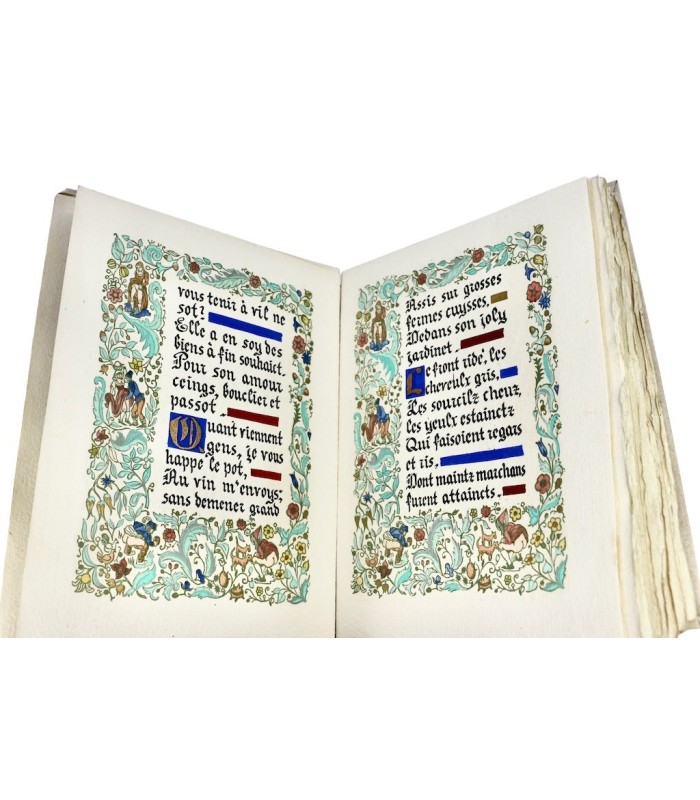 vous tenir à vil ne
sot?
Elle a en soy des
biens à fin souhaict.
Pour son amour
ceings, bouclier et
passot.
Quant viennent
gens, je vous
happe le pot,
Au vin m'envoys;
sans demener grand
Assis sur grosses
fermes cuysses,
Dedans son joly
jardinet.
Le front ridé, les
cheveulx gris,
Les sourcilz cheuz,
les yeulx estainctz
Qui faisoient regars
et ris,
Dont maintz marchans
furent attainctz.